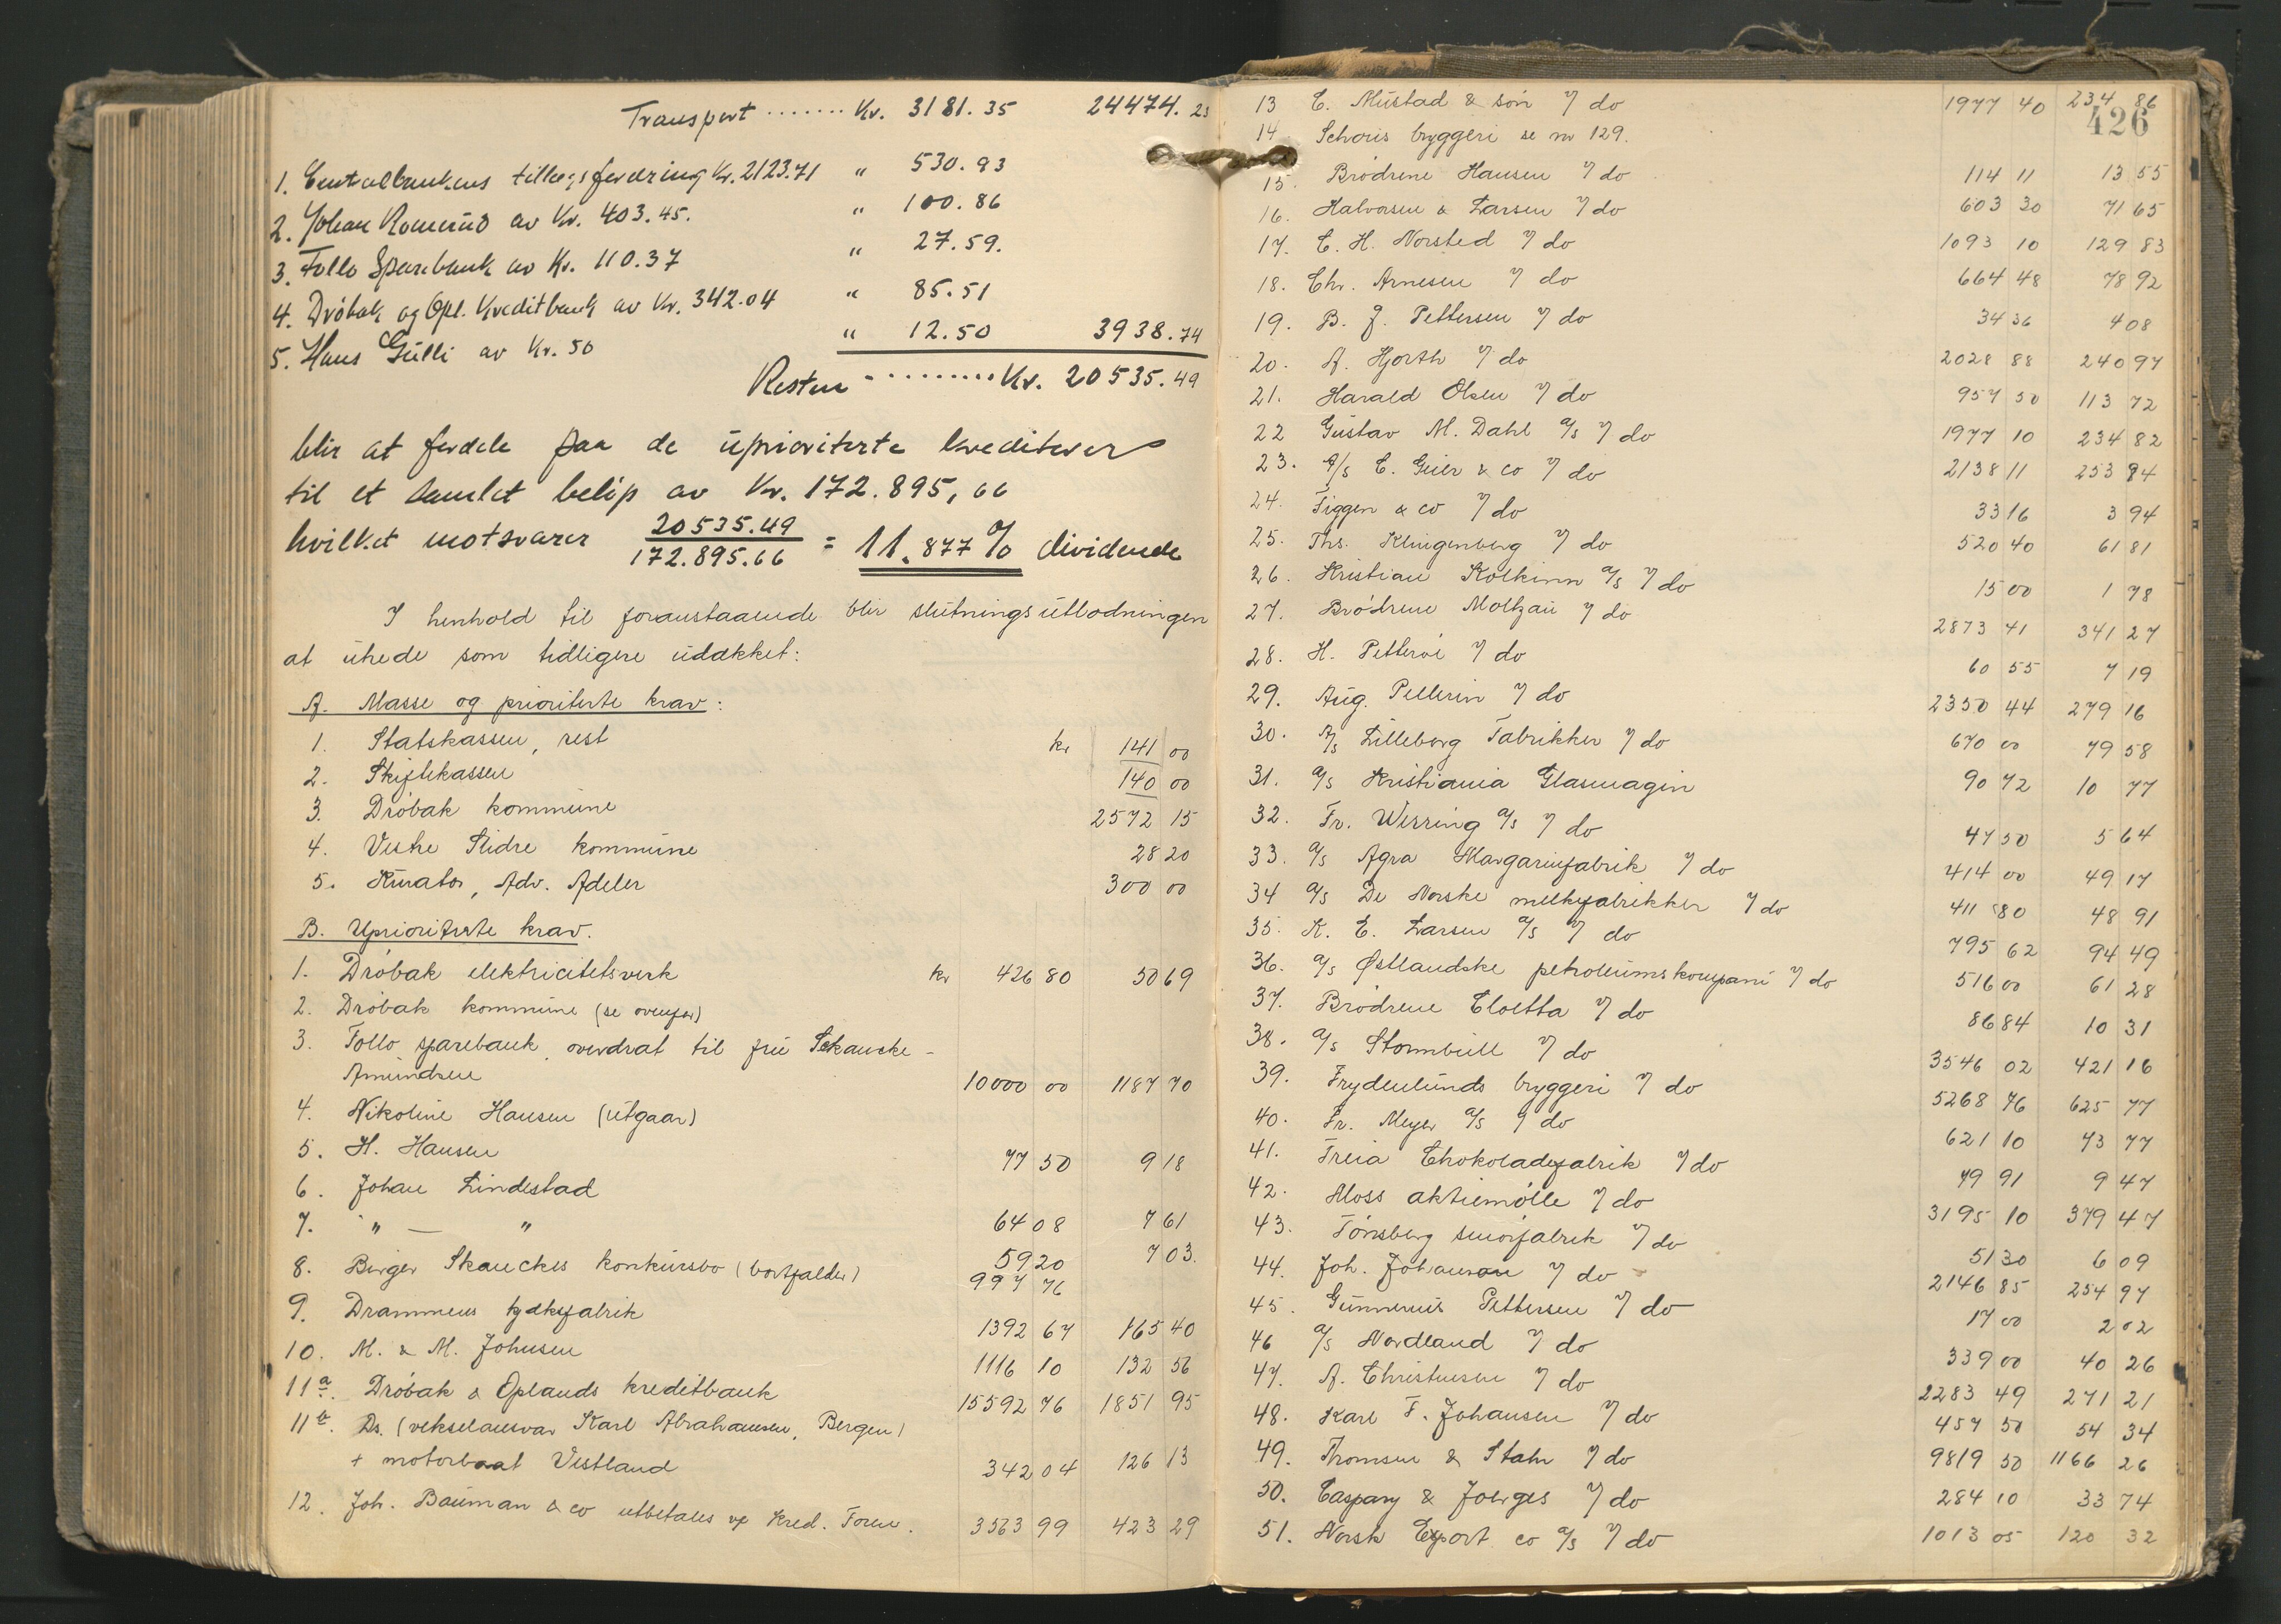 Transport ....... Kr. 3181.35 24474.23
1. Centralbankens tillægsfordring Kr. 2123.71 " 530.93
2. Johan Romerud av Kr. 403.45. " 100.86
3. Follo Sparebank av Kr. 110.37 " 27.59.
4. Dröbak og Opl. Kreditbank av Kr. 342.04 " 85.51
5. Hans Gulli av Kr. 50 " 12.50 3938.74
Resten ......... Kr. 20535.49
blir at fordele paa de uprioriterte kreditorer
til et samlet belöp av Kr. 172.895,66
hvilket motsvarer 20535.49 / 172.895.66 = 11.877% dividende
I henhold til foranstaaende blir slutningsutlodningen
at utrede som tidligere utdekket:
A. Masse og prioriterte krav:
1. Statskassen, rest kr 141 00
2. Skiftekassen 140 00
3. Dröbak kommune 2572 15
4. Vestre Slidre kommune 28 20
5. Kurator, Adv. Adeler 300 00
B. Uprioriterte krav.
1. Dröbak elektricitetsverk kr 426 80 50 69
2. Dröbak kommune (se ovenfor)
3. Follo sparebank, overdrat til fru Skancke-
Amundsen 10000 00 1187 70
4. Nikoline Hansen (utgaar)
5. H. Hansen 77 50 9 18
6. Johan Lindestad 64 08 7 61
7. " — " 59 20 7 03.
8. Birger Skanckes konkursbo (bortfalder) 997 76
9. Drammens kjeksfabrik 1392 67 165 40
10. M. & M. Johnsen 1116 10 132 56
11a. Dröbak & Oplands kreditbank 15592 76 1851 95
11b. Ds. (vekselansvar Karl Abrahamsen, Bergen)
+ motorbaat Vestland 342 04 126 13
12. Joh. Bauman & co utbetales v/ Kred. Foren. 3563 99 423 29
426
13 C. Mustad & sön 7/ do 1977 40 234 86
14 Schous bryggeri se nr 129.
15. Brödrene Hansen 7/ do 114 11 13 55
16. Halvorsen & Larsen 7/ do 603 30 71 65
17. C. H. Norsted 7/ do 1093 10 129 83
18. Chr. Arnesen 7/ do 664 48 78 92
19. B. J. Pettersen 7/ do 34 36 4 08
20. A. Hjorth 7/ do 2028 88 240 97
21. Harald Olsen 7/ do 957 50 113 72
22 Gustav M. Dahl A/s 7/ do 1977 10 234 82
23. A/s C. Geier & co 7/ do 2138 11 253 94
24. Figgen & co 7/ do 33 16 3 94
25. Ths. Klingenberg 7/ do 520 40 61 81
26. Kristian Kolkinn A/s 7/ do 15 00 1 78
27. Brödrene Moltzau 7/ do 2873 41 341 27
28. H. Petteröe 7/ do 60 55 7 19
29. Aug. Pellerin 7/ do 2350 44 279 16
30. A/s Lilleborg Fabrikker 7/ do 670 00 79 58
31. A/s Kristiania Glasmagin 90 72 10 77
32. Fr. Wissing A/s 7/ do 47 50 5 64
33. A/s Agra Margarinfabrik 7/ do 414 00 49 17
34 A/s De Norske melkefabrikker 7/ do 411 80 48 91
35. K. E. Larsen A/s 7/ do 795 62 94 49
36. A/s Østlandske petroleumskompani 7/ do 516 00 61 28
37. Brödrene Cloetta 7/ do 86 84 10 31
38. A/s Stormbull 7/ do 3546 02 421 16
39. Frydenlunds bryggeri 7/ do 5268 76 625 77
40. Fr. Meyer A/s 7/ do 621 10 73 77
41. Freia Chokoladefabrik 7/ do 79 91 9 47
42. Moss aktiemölle 7/ do 3195 10 379 47
43. Tönsberg smörfabrik 7/ do 51 30 6 09
44. Joh. Johanson 7/ do 2146 85 254 97
45. Gunnerius Pettersen 7/ do 17 00 2 02
46 A/s Nordland 7/ do 339 00 40 26
47. A. Christensen 7/ do 2283 49 271 21
48. Karl F. Johansen 7/ do 457 50 54 34
49. Thomsen & Stahr 7/ do 9819 50 1166 26
50. Caspary & Joerges 7/ do 284 10 33 74
51. Norsk Export co A/s 7/ do 1013 05 120 32